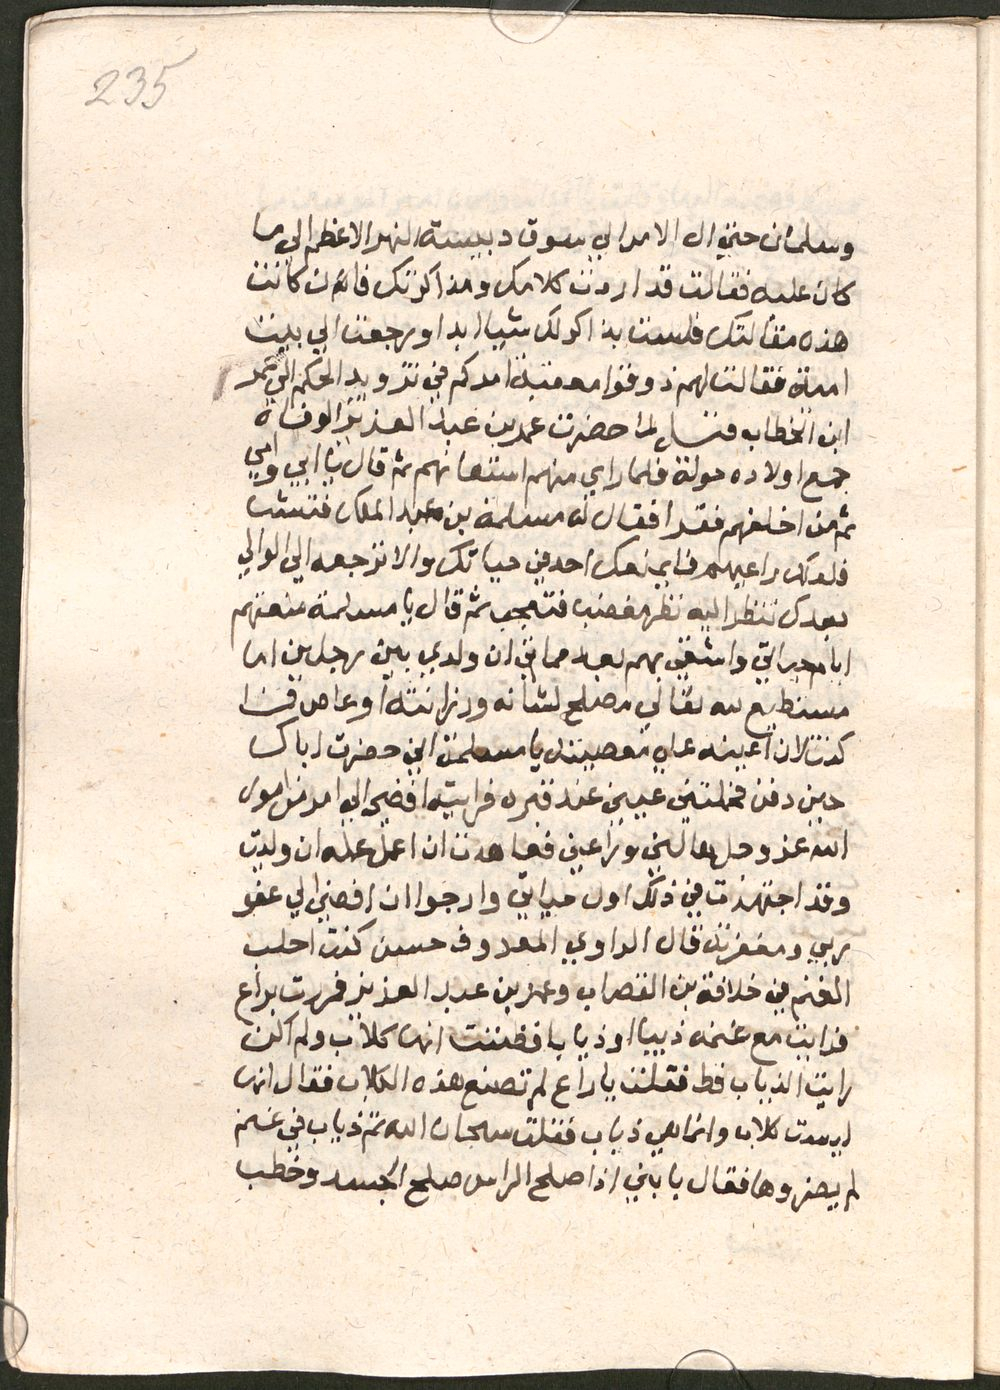 235
وسلمان حتى ال الامر الي يسوق دييسته النهر الاعظم الي ما
كان عليه فقالت قد اردت كلامك ومذاكرتك فاما ان كانت
هذه مقالتك فلست بذاكر لك شيا ابدا ورجعت الي بيت
امية فقالت لهم ذوقوا مغبة امركم في تزويد الحكم الي عمر
ابن الخطاب فيل لما حضرت عمر بن عبد العزيز الوفاة
جمع اولاده حوله فلما راي منهم استعانهم ثم قال يا ابي وامي
ثم من اخلفهم فقرا فقال له مسلمة بن عبد الملك فتشت
فلعلك راعيهم فما يمنعك احد في حياتك ولا ترجعه الي الوالي
بعدك فنظر اليه نظر مغضب فتعجب ثم قال يا مسلمة منعتهم
ايام حياتي واشقي بهم بعد مماتي ان ولدي بين رجلين اما
مستطيع لله تعالي مصلح لشانه ورزانته او عاص فما
كنت لان اعينه علي معصيته يا مسلمة اني حضرت اباك
حين دفن فحملتني عيني عند قبره فرايته افضي الي امر من امور
الله عز وجل هالني وراعني فعاهدت ان اعمل عمله ان وليت
وقد اجتهدت في ذلك اول حياتي وارجوا ان افضي الي عفو
ربي ومغفرته قال الراوي المعروف حسن كنت احلب
الغنم في خلافة بن القصاب وعمر بن عبد العزيز فمررت براع
فرايت مع غنمه ذيبا او ذيابا فظننت انها كلاب ولم اكن
رايت الذياب قط فقلت يا راع لم تصنع هذه الكلاب فقال انها
ليست كلاب وانما هي ذياب فقلت سبحان الله ثم ذياب في غنم
لم يضروها فقال يا بني اذا صلح الراس صلح الجسد وخطب